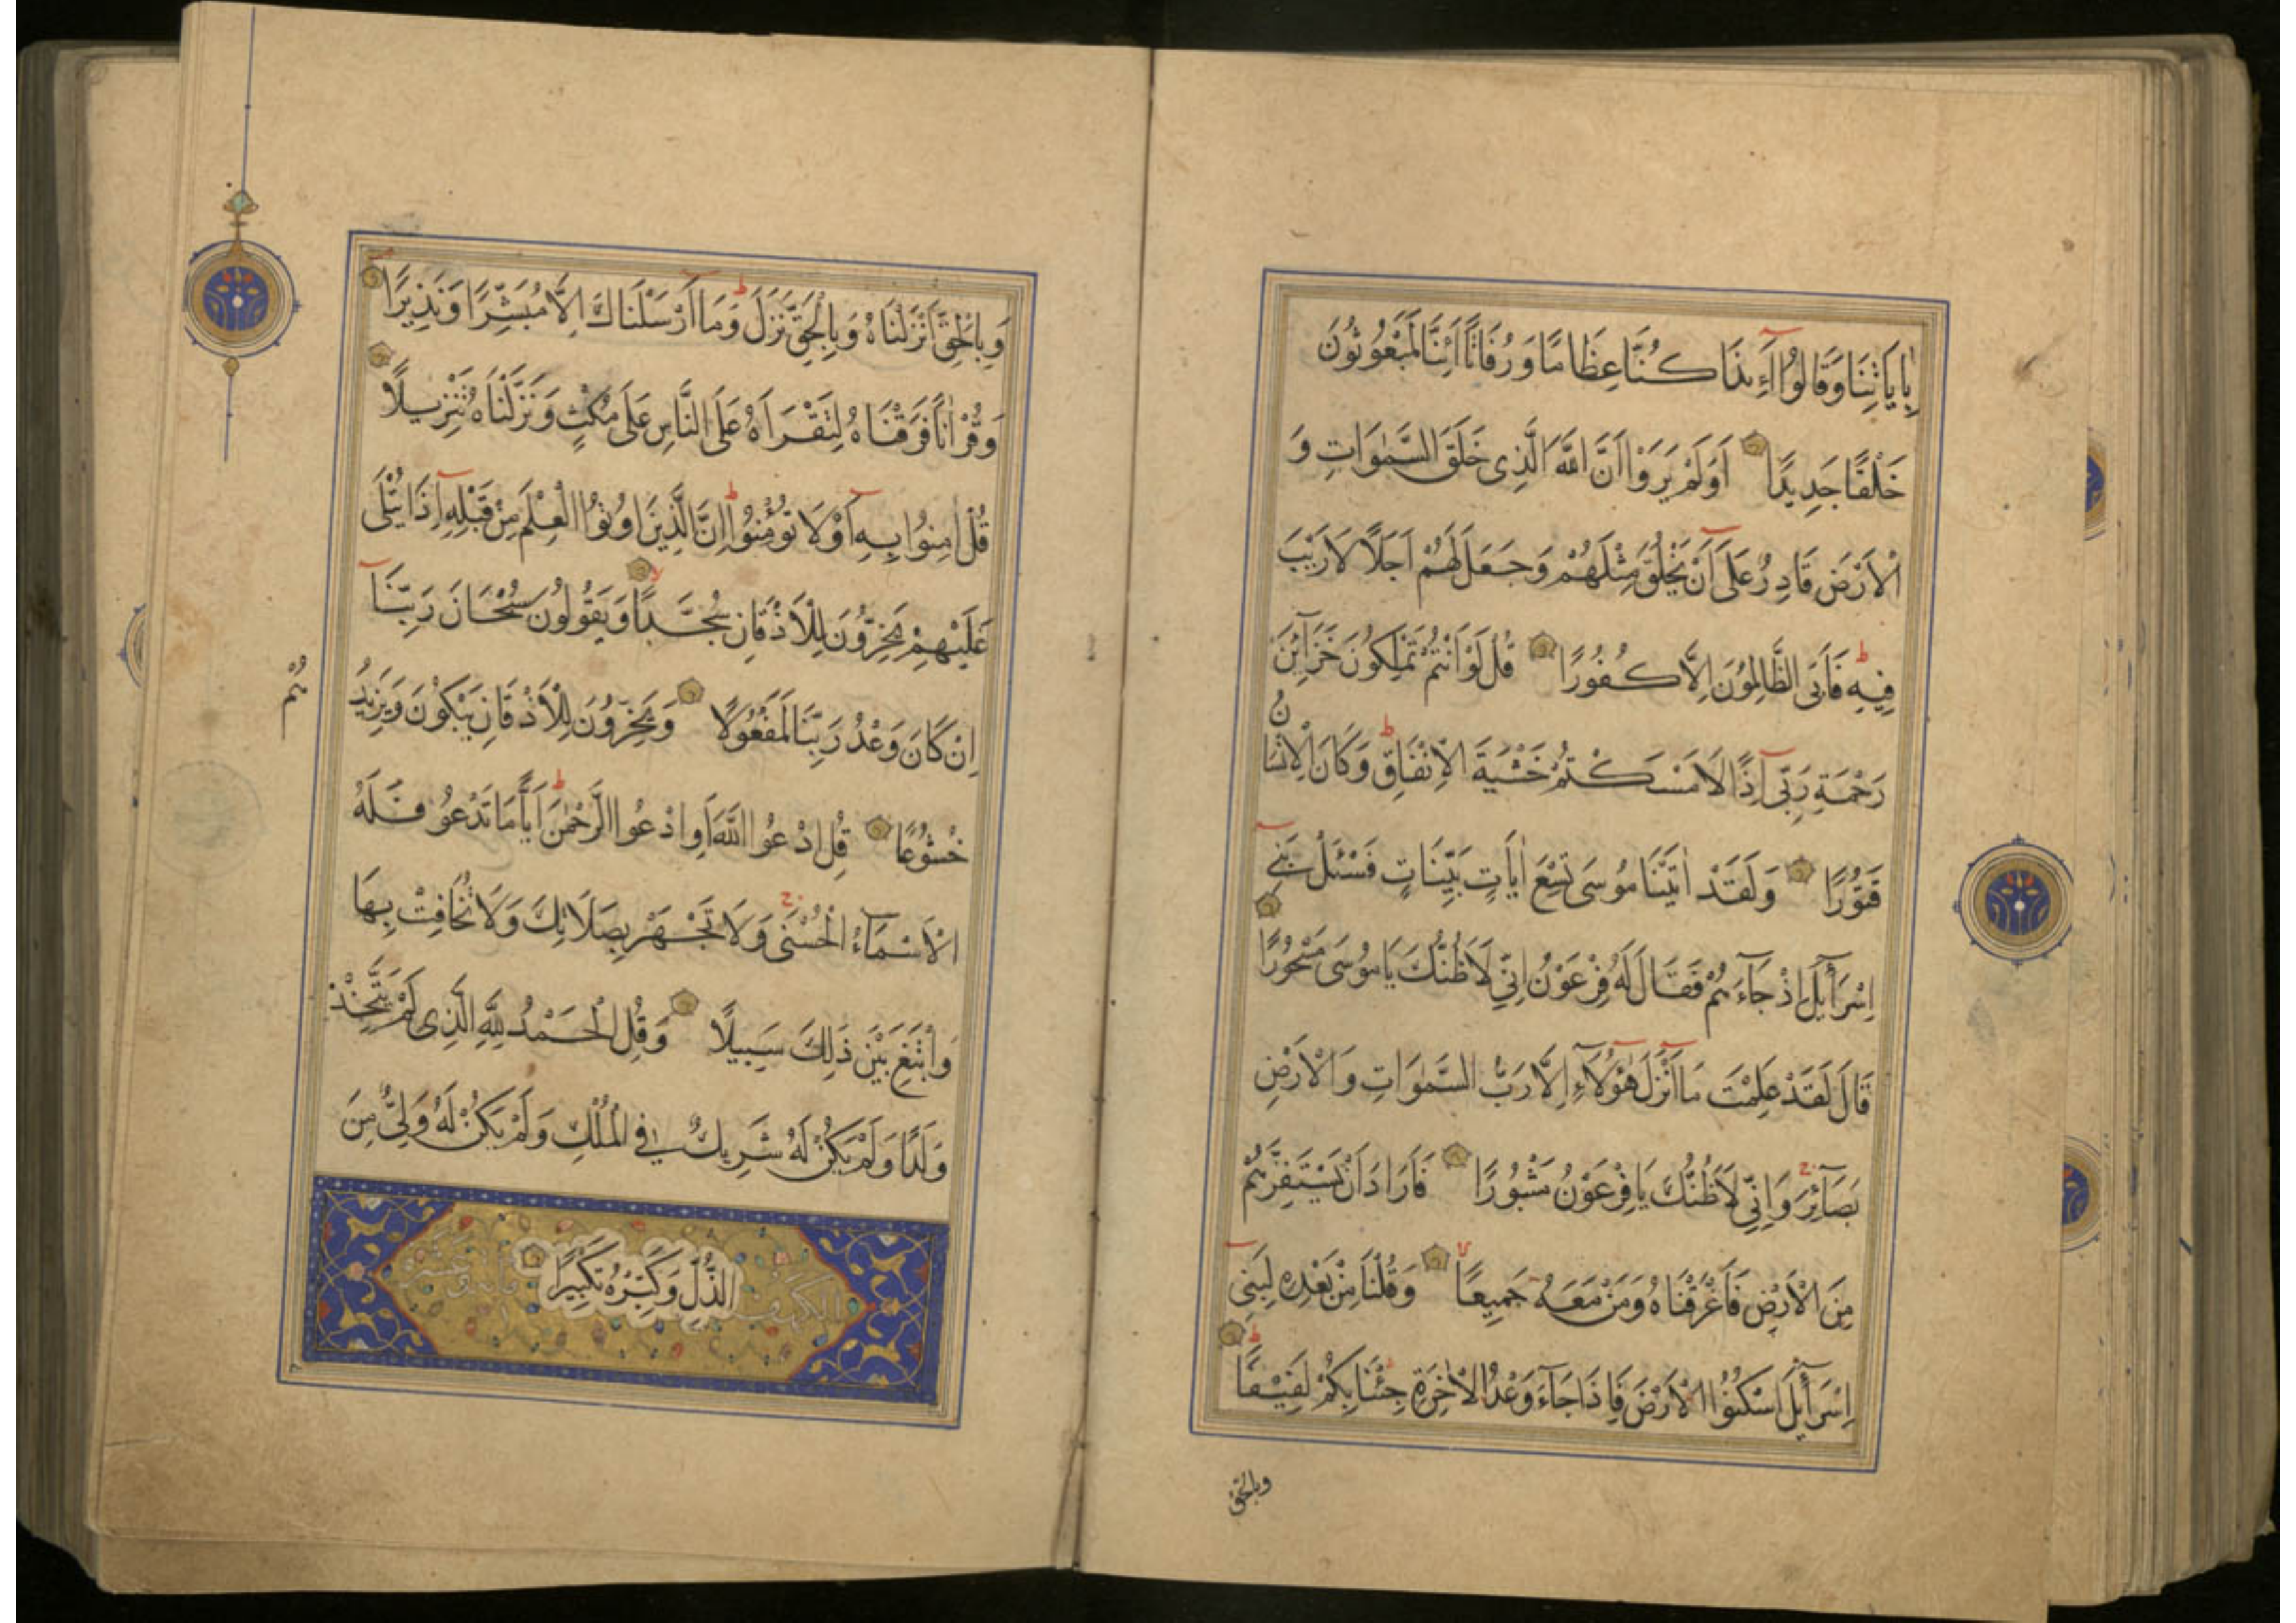 بِاٰيَاتِنَا وَقَالُوٓا ءَاِذَا كُنَّا عِظَامًا وَرُفَاتًا اَئِنَّا لَمَبْعُوثُونَ
خَلْقًا جَدِيدًا اَوَلَمْ يَرَوْا اَنَّ اللّٰهَ الَّذِى خَلَقَ السَّمٰوَاتِ وَ
الْاَرْضَ قَادِرٌ عَلَىٓ اَنْ يَخْلُقَ مِثْلَهُمْ وَجَعَلَ لَهُمْ اَجَلًا لَا رَيْبَ
فِيهِ ط فَاَبَى الظَّالِمُونَ اِلَّا كُفُورًا قُلْ لَوْ اَنْتُمْ تَمْلِكُونَ خَزَآئِنَ
رَحْمَةِ رَبِّىٓ اِذًا لَاَمْسَكْتُمْ خَشْيَةَ الْاِنْفَاقِ ط وَكَانَ الْاِنْسَانُ
قَتُورًا وَلَقَدْ اٰتَيْنَا مُوسَى تِسْعَ اٰيَاتٍ بَيِّنَاتٍ فَسْئَلْ بَنِىٓ
اِسْرَآئِلَ اِذْ جَآءَهُمْ فَقَالَ لَهُ فِرْعَوْنُ اِنِّى لَاَظُنُّكَ يَا مُوسَى مَسْحُورًا
قَالَ لَقَدْ عَلِمْتَ مَآ اَنْزَلَ هٰٓؤُلَآءِ اِلَّا رَبُّ السَّمٰوَاتِ وَالْاَرْضِ
بَصَآئِرَ ج وَاِنِّى لَاَظُنُّكَ يَا فِرْعَوْنُ مَثْبُورًا فَاَرَادَ اَنْ يَسْتَفِزَّهُمْ
مِنَ الْاَرْضِ فَاَغْرَقْنَاهُ وَمَنْ مَعَهُ جَمِيعًا لا وَقُلْنَا مِنْ بَعْدِهِ لِبَنِىٓ
اِسْرَآئِلَ اسْكُنُوا الْاَرْضَ فَاِذَا جَآءَ وَعْدُ الْاٰخِرَةِ جِئْنَا بِكُمْ لَفِيفًا ط
وبالحق
وَبِالْحَقِّ اَنْزَلْنَاهُ وَبِالْحَقِّ نَزَلَ ط وَمَآ اَرْسَلْنَاكَ اِلَّا مُبَشِّرًا وَنَذِيرًا
وَقُرْاٰنًا فَرَقْنَاهُ لِتَقْرَاَهُ عَلَى النَّاسِ عَلَى مُكْثٍ وَنَزَّلْنَاهُ تَنْزِيلًا
قُلْ اٰمِنُوا بِهِٓ اَوْ لَا تُؤْمِنُوا ط اِنَّ الَّذِينَ اُوتُوا الْعِلْمَ مِنْ قَبْلِهِٓ اِذَا يُتْلَى
عَلَيْهِمْ يَخِرُّونَ لِلْاَذْقَانِ سُجَّدًا لا وَيَقُولُونَ سُبْحَانَ رَبِّنَآ
اِنْ كَانَ وَعْدُ رَبِّنَا لَمَفْعُولًا وَيَخِرُّونَ لِلْاَذْقَانِ يَبْكُونَ وَيَزِيدُ
هُمْ
خُشُوعًا قُلِ ادْعُوا اللّٰهَ اَوِ ادْعُوا الرَّحْمٰنَ ط اَيًّا مَا تَدْعُو فَلَهُ
الْاَسْمَآءُ الْحُسْنَى ج وَلَا تَجْهَرْ بِصَلَاتِكَ وَلَا تُخَافِتْ بِهَا
وَابْتَغِ بَيْنَ ذَلِكَ سَبِيلًا وَقُلِ الْحَمْدُ لِلّٰهِ الَّذِى لَمْ يَتَّخِذْ
وَلَدًا وَلَمْ يَكُنْ لَهُ شَرِيكٌ فِى الْمُلْكِ وَلَمْ يَكُنْ لَهُ وَلِىٌّ مِنَ
الذُّلِّ وَكَبِّرْهُ تَكْبِيرًا